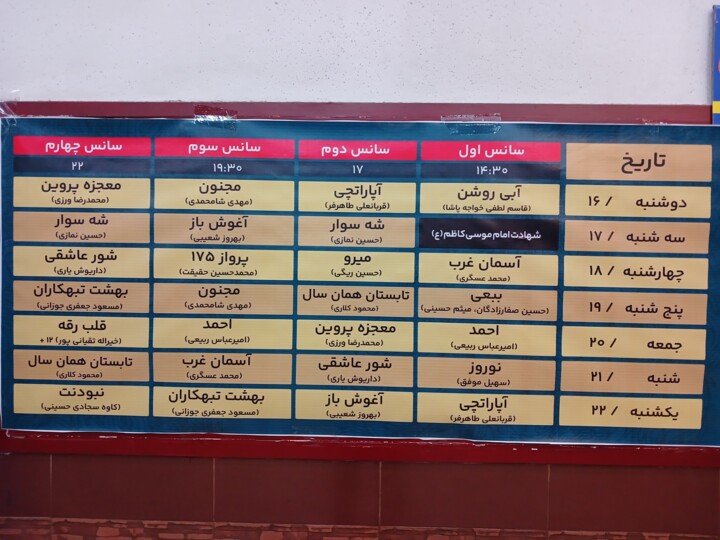 تاریخ
سانس اول
سانس دوم
سانس سوم
سانس چهارم
۱۴:۳۰
۱۷
۱۹:۳۰
۲۲
دوشنبه / ۱۶
آبی روشن
(قاسم لطفی خواجه پاشا)
آپاراتچی
(قربانعلی طاهرفر)
مجنون
(مهدی شامحمدی)
معجزه پروین
(محمدرضا ورزی)
سه شنبه / ۱۷
شهادت امام موسی کاظم (ع)
شه سوار
(حسین نمازی)
آغوش باز
(بهروز شعیبی)
شه سوار
(حسین نمازی)
چهارشنبه / ۱۸
آسمان غرب
(محمد عسگری)
میرو
(حسین ریگی)
پرواز ۱۷۵
(محمدحسین حقیقت)
شور عاشقی
(داریوش یاری)
پنج شنبه / ۱۹
ببعی
(حسین صفارزادگان، میثم حسینی)
تابستان همان سال
(محمود کلاری)
مجنون
(مهدی شامحمدی)
بهشت تبهکاران
(مسعود جعفری جوزانی)
جمعه / ۲۰
احمد
(امیرعباس ربیعی)
معجزه پروین
(محمدرضا ورزی)
احمد
(امیرعباس ربیعی)
قلب رقه
(خیراله تقیانی پور) ۱۲ +
شنبه / ۲۱
نوروز
(سهیل موفق)
شور عاشقی
(داریوش یاری)
آسمان غرب
(محمد عسگری)
تابستان همان سال
(محمود کلاری)
یکشنبه / ۲۲
آپاراتچی
(قربانعلی طاهرفر)
آغوش باز
(بهروز شعیبی)
بهشت تبهکاران
(مسعود جعفری جوزانی)
نبودنت
(کاوه سجادی حسینی)